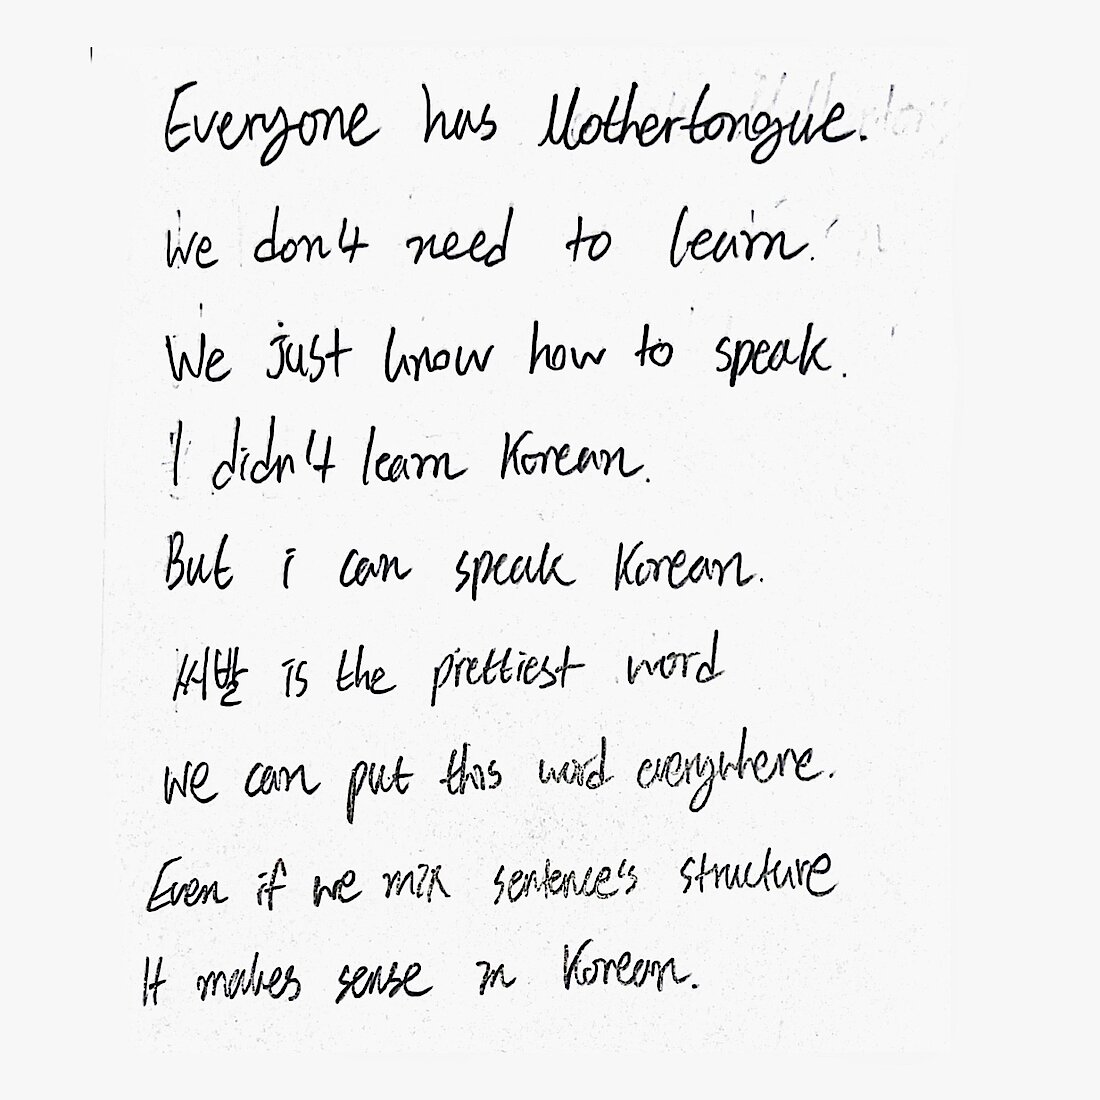 Everyone has Mothertongue.
We don't need to learn.
We just know how to speak.
I didn't learn Korean.
But i can speak Korean.
씨발 is the prettiest word
We can put this word everywhere.
Even if we mix sentence's structure
It makes sense in Korean.